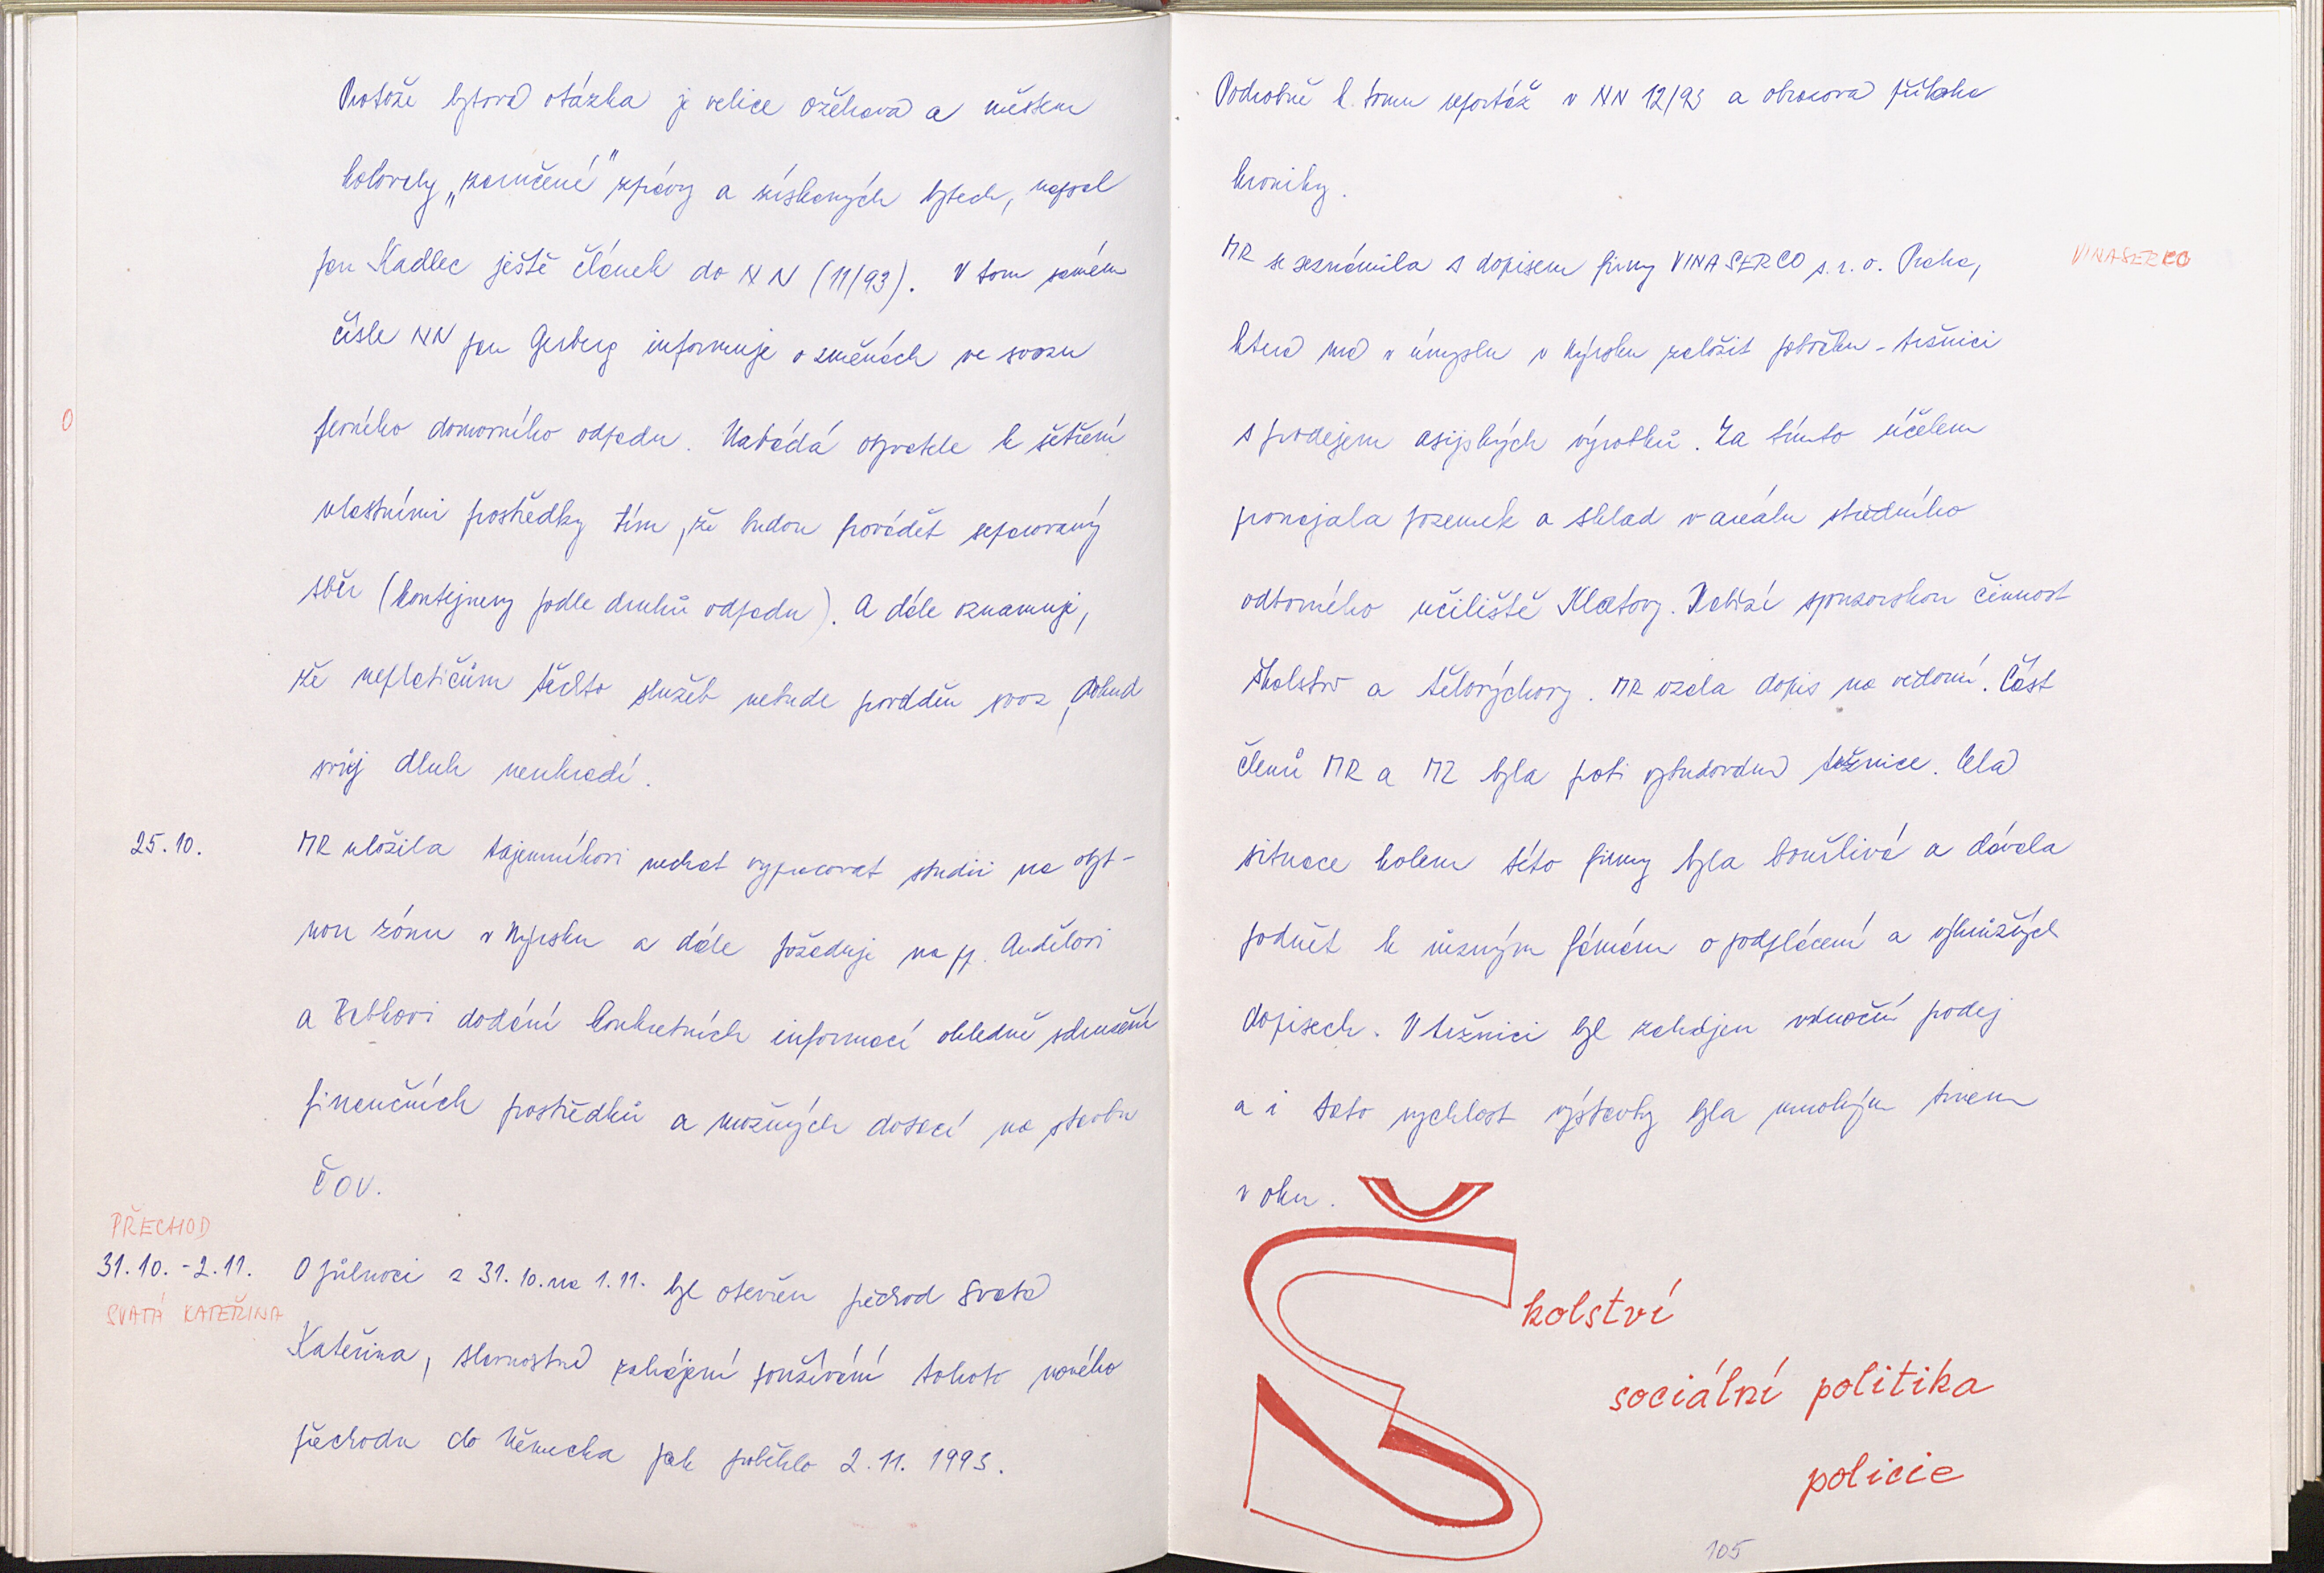 Protože bytová otázka je velice ožehavá a městem
kolovaly „zaručené" zprávy a získaných bytech, napsal
pan Kadlec ještě článek do NN (11/93). V tom samém
čísle NN pan Gerberg informuje o změnách ve svozu
pevného domovního odpadu. Nabádá obyvatele k šetření
vlastními prostředky tím, že budou provádět separovaný
sběr (kontejnery podle druhů odpadu). A dále oznamuje,
že neplatičům těchto služeb nebude prováděn svoz, pokud
svůj dluh neuhradí.
25.10. MR uložila tajemníkovi nechat vypracovat studii na obyt-
nou zónu v Nýrsku a dále požaduje na pp. Andělovi
a Babkovi dodání konkretních informací ohledně sdružení
finančních prostředků a možných dotací na stavbu
ČOV.
PŘECHOD
31.10.-2.11. O půlnoci z 31.10. na 1.11. byl otevřen přechod Svatá
SVATÁ KATEŘINA
Kateřina, slavnostní zahájení používání tohoto nového
přechodu do Německa pak proběhlo 2.11. 1993.
Podrobně k tomu reportáž v NN 12/93 a obrazová příloha
kroniky.
MR se seznámila s dopisem firmy VINASERCO s.r.o. Praha, VINASERCO
která má v úmyslu v Nýrsku založit pobočku - tržnici
s prodejem asijských výrobků. Za tímto účelem
pronajala pozemek a sklad v areálu středního
odborného učiliště Klatovy. Nabízí sponzorskou činnost
školství a tělovýchovy. MR vzala dopis na vědomí. Část
členů MR a MZ byla proti vybudování tržnice. Celá
situace kolem této firmy byla bouřlivá a dávala
podnět k různým fámám o podplácení a výhrůžných
dopisech. V tržnici byl zahájen vánoční prodej
a i tato rychlost výstavby byla mnohým trnem
v oku.
Školství
sociální politika
policie
105